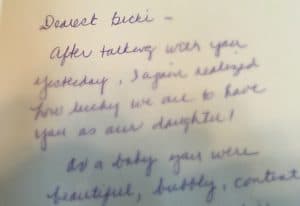 Dearest Vicki -
After talking with you
yesterday, I again realized
how lucky we are to have
you as our daughter!
As a baby you were
beautiful, bubbly, content